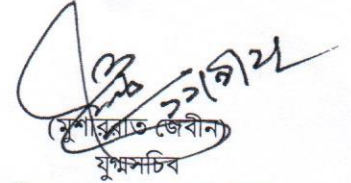 (মুশাররাত জেবীন)
যুগ্মসচিব